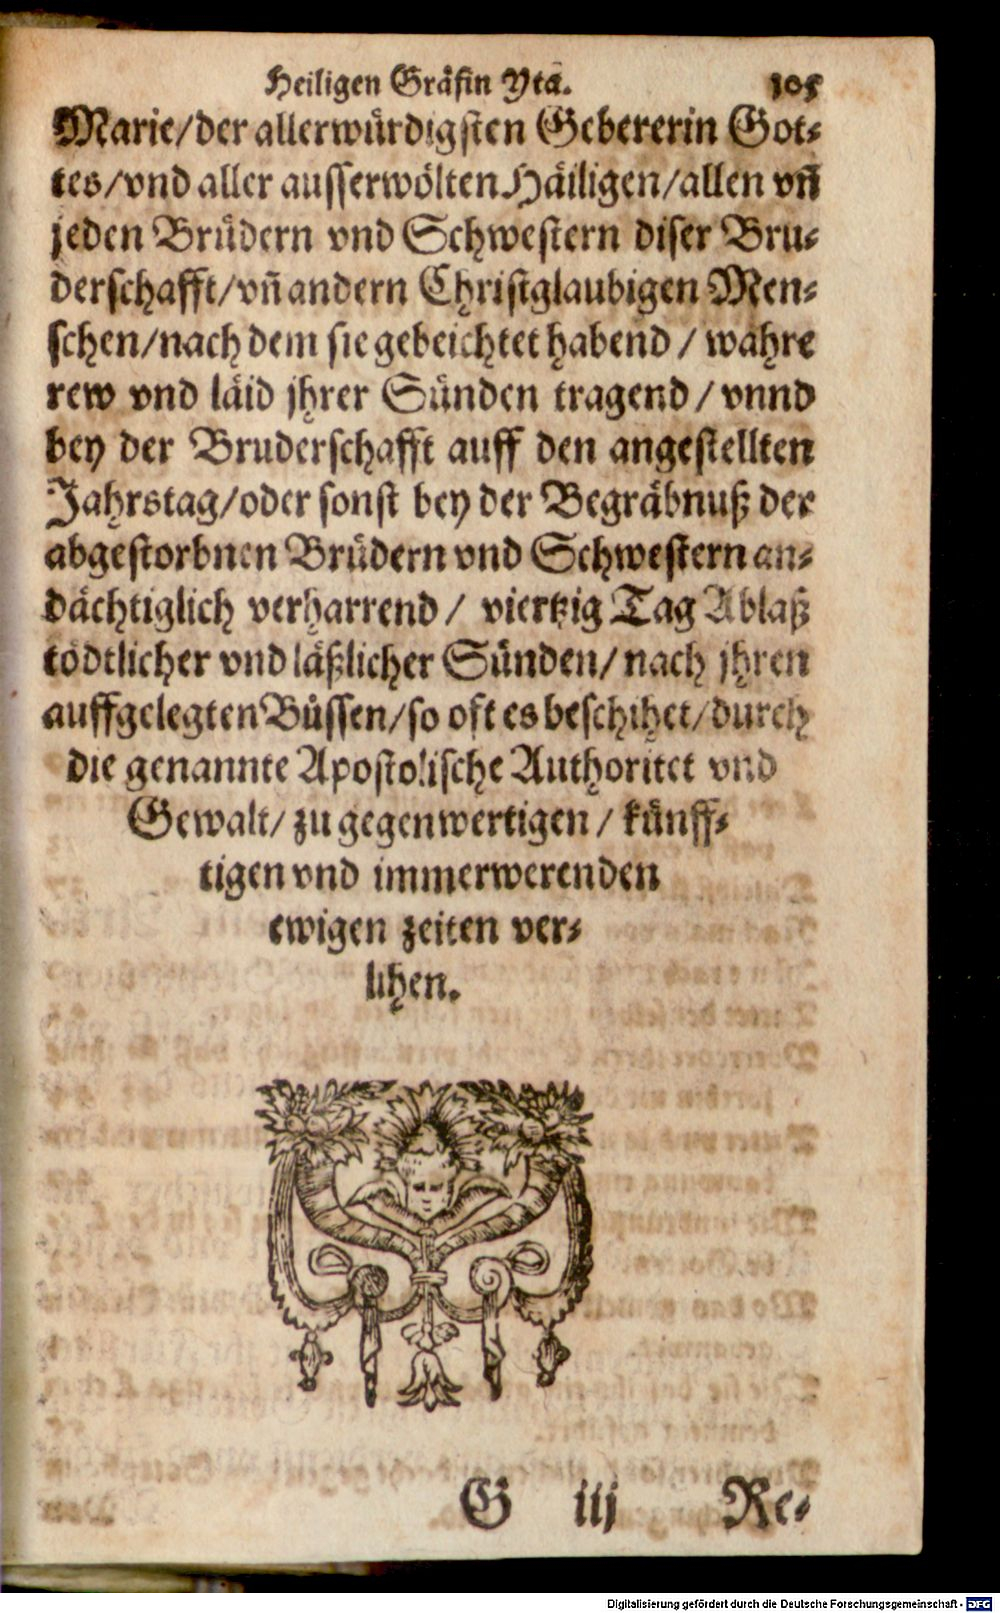 Heiligen Gräfin Yta. 105
Marie/der allerwürdigsten Gebererin Got-
tes/vnd aller ausserwölten Häiligen/allen vñ
jeden Brüdern vnd Schwestern diser Bru-
derschafft/vñ andern Christglaubigen Men-
schen/nach dem sie gebeichtet habend / wahre
rew vnd läid jhrer Sünden tragend / vnnd
bey der Bruderschafft auff den angestellten
Jahrstag/oder sonst bey der Begräbnuß der
abgestorbnen Brüdern vnd Schwestern an-
dächtiglich verharrend / viertzig Tag Ablaß
tödtlicher vnd läßlicher Sünden/ nach jhren
auffgelegten Büssen/so oft es beschihet/durch
die genannte Apostolische Authoritet vnd
Gewalt/ zu gegenwertigen / künff-
tigen vnd immerwerenden
ewigen zeiten ver-
lihen.
G iij Re-
Digitalisierung gefördert durch die Deutsche Forschungsgemeinschaft - DFG